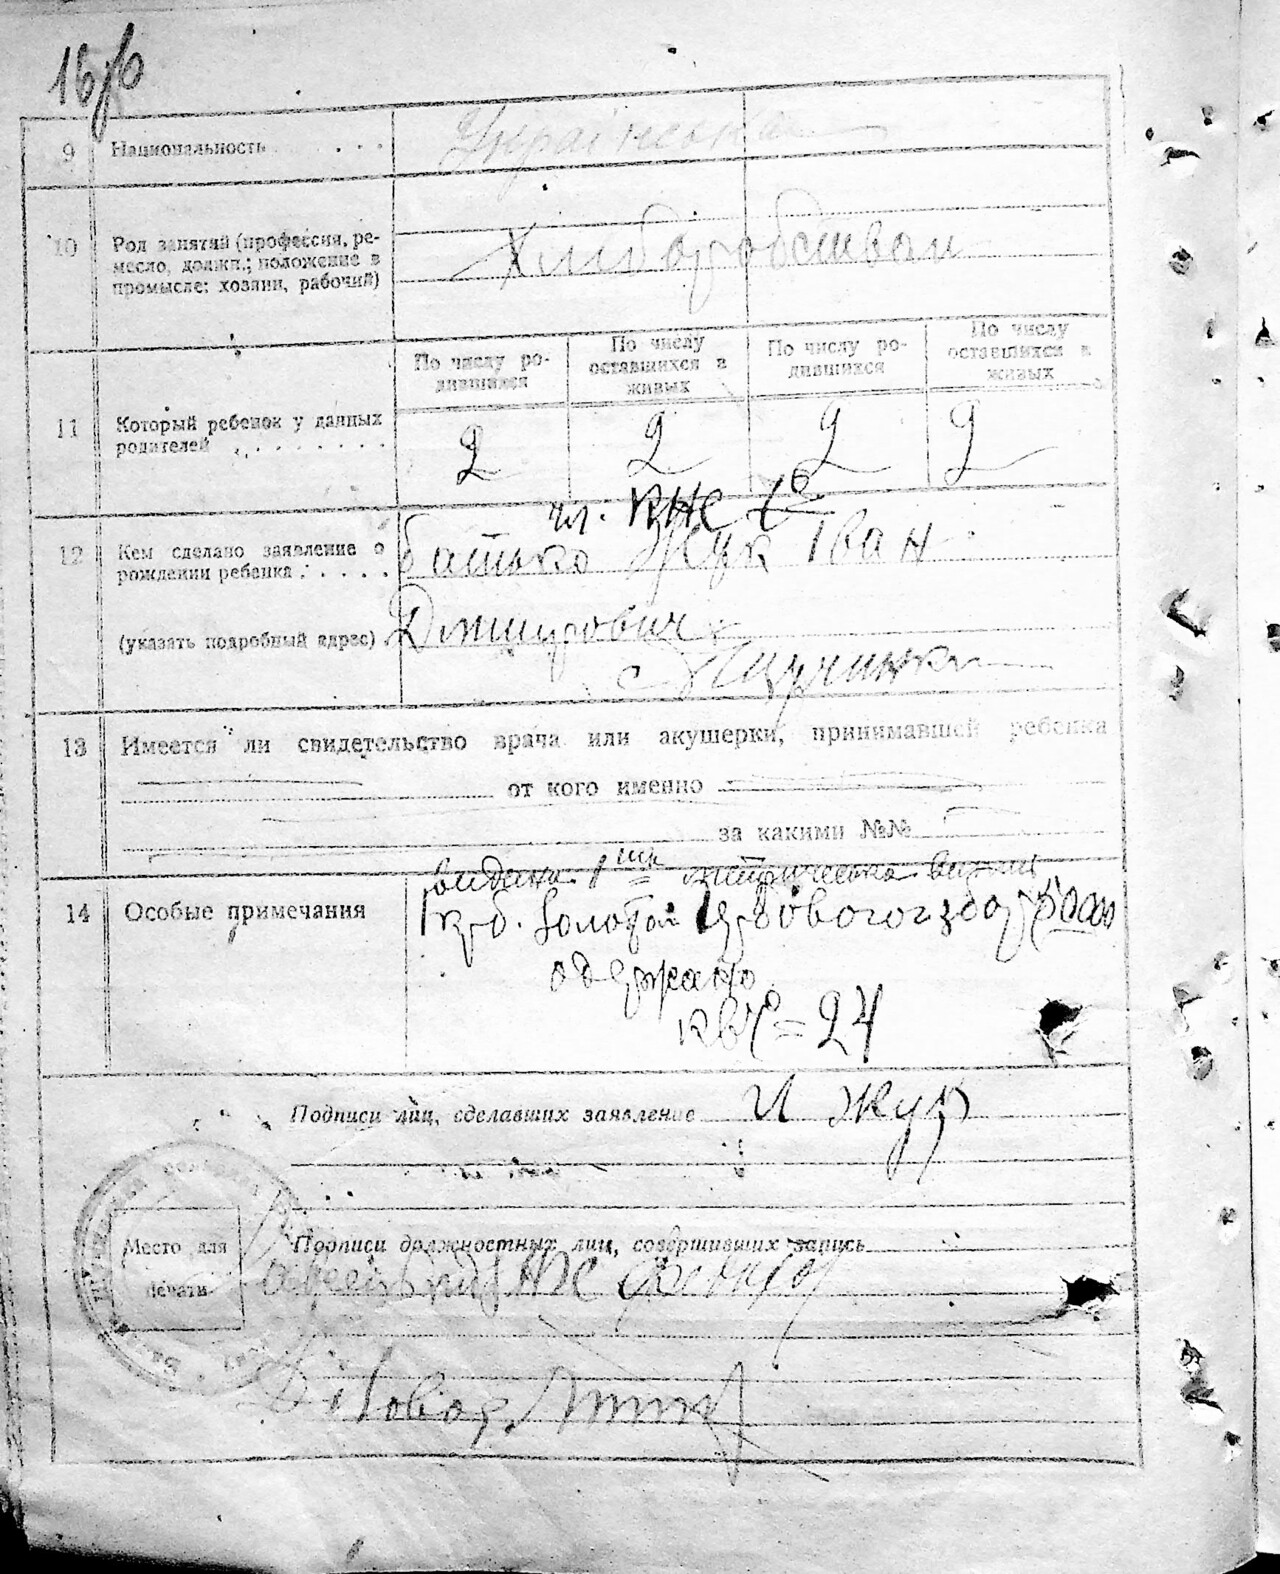 16
9 Национальность . . . . Українська
10 Род занятий (профессия, ре-
месло, должн.; положение в
промысле: хозяин, рабочий)
Хліборобством
По числу ро-
дившихся
По числу
оставшихся в
живых
По числу ро-
дившихся
По числу
оставшихся в
живых
11 Который ребенок у данных
родителей . . . . . . . .
2 2 2 2
чл. КНС
12 Кем сделано заявление о
рождении ребенка . . . . .
батько Жук Іван
(указать подробный адрес) Дмитрович
с
13 Имеется ли свидетельство врача или акушерки, принимавшей ребенка
от кого именно
за какими №№
видана метрическа
14 Особые примечания
крб. золотом 50000
одержано
кв. = 24
Подписи лиц, сделавших заявление И Жук
Место для
печати
Подписи должностных лиц, совершивших запись
Діловод